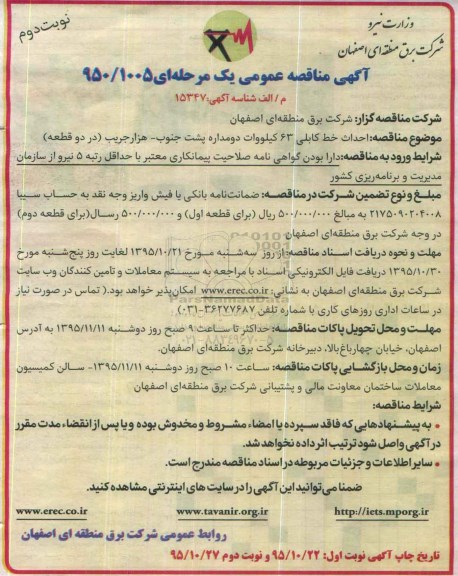 نوبت دوم
وزارت نیرو
شرکت برق منطقه ای اصفهان
آگهی مناقصه عمومی یک مرحله‌ای ۹۵۰/۱۰۰۵
م / الف شناسه آگهی: ۱۵۳۴۷
شرکت مناقصه گزار: شرکت برق منطقه‌ای اصفهان
موضوع مناقصه: احداث خط کابلی ۶۳ کیلووات دومداره پشت جنوب- هزارجریب (در دو قطعه)
شرایط ورود به مناقصه: دارا بودن گواهی نامه صلاحیت پیمانکاری معتبر با حداقل رتبه ۵ نیرو از سازمان
مدیریت و برنامه‌ریزی کشور
مبلغ و نوع تضمین شرکت در مناقصه: ضمانت‌نامه بانکی یا فیش واریز وجه نقد به حساب سیبا
۲۱۷۵۰۹۰۲۰۴۰۰۸ به مبالغ ۵۰۰/۰۰۰/۰۰۰ ریال (برای قطعه اول) و ۵۰۰/۰۰۰/۰۰۰ ریال (برای قطعه دوم)
در وجه شرکت برق منطقه‌ای اصفهان
مهلت و نحوه دریافت اسناد مناقصه: از روز سه‌شنبه مورخ ۱۳۹۵/۱۰/۲۱ لغایت روز پنج‌شنبه مورخ
۱۳۹۵/۱۰/۳۰ دریافت فایل الکترونیکی اسناد با مراجعه به سیستم معاملات و تامین کنندگان وب سایت
شرکت برق منطقه‌ای اصفهان به نشانی: www.erec.co.ir امکان‌پذیر خواهد بود. (تماس در صورت نیاز
در ساعات اداری روزهای کاری با شماره تلفن ۳۶۲۷۷۶۸۷-۰۳۱)
مهلت و محل تحویل پاکات مناقصه: حداکثر تا ساعت ۹ صبح روز دوشنبه ۱۳۹۵/۱۱/۱۱ به آدرس
اصفهان، خیابان چهارباغ‌بالا، دبیرخانه شرکت برق منطقه‌ای اصفهان.
زمان و محل بازگشایی پاکات مناقصه: ساعت ۱۰ صبح روز دوشنبه ۱۳۹۵/۱۱/۱۱- سالن کمیسیون
معاملات ساختمان معاونت مالی و پشتیبانی شرکت برق منطقه‌ای اصفهان
شرایط مناقصه:
• به پیشنهادهایی که فاقد سپرده یا امضاء، مشروط و مخدوش بوده و یا پس از انقضاء مدت مقرر
در آگهی واصل شود ترتیب اثر داده نخواهد شد.
• سایر اطلاعات و جزئیات مربوطه در اسناد مناقصه مندرج است.
ضمنا می‌توانید این آگهی را در سایت های اینترنتی مشاهده کنید.
http://iets.mporg.ir www.tavanir.org.ir www.erec.co.ir
روابط عمومی شرکت برق منطقه ای اصفهان
تاریخ چاپ آگهی نوبت اول: ۹۵/۱۰/۲۲ و نوبت دوم ۹۵/۱۰/۲۷